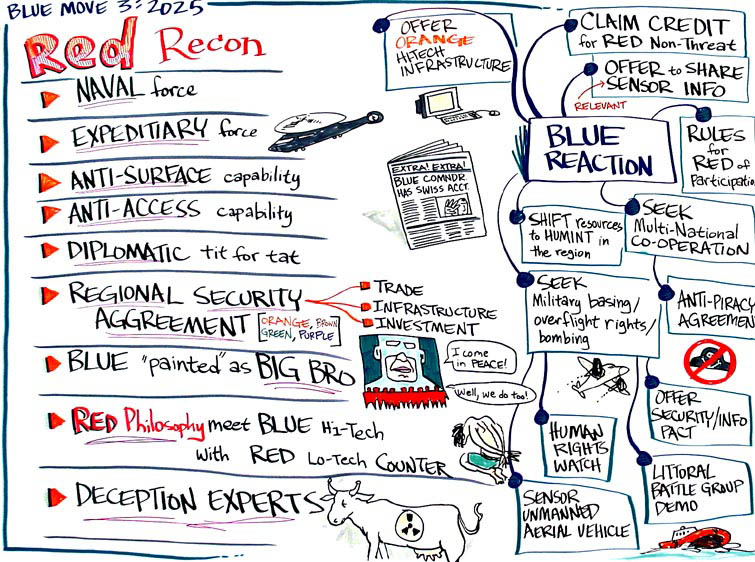 BLUE MOVE 3: 2025
Red Recon
NAVAL force
EXPEDITIARY force
ANTI-SURFACE capability
ANTI-ACCESS capability
DIPLOMATIC tit for tat
REGIONAL SECURITY
AGGREEMENT
ORANGE, BROWN
GREEN, PURPLE
TRADE
INFRASTRUCTURE
INVESTMENT
BLUE "painted" as BIG BRO
I come
in PEACE!
Well, we do too!
RED Philosophy meet BLUE Hi-Tech
with RED Lo-Tech COUNTER
DECEPTION EXPERTS
EXTRA! EXTRA!
BLUE COMNDR.
HAS SWISS ACCT.
BLUE
REACTION
OFFER
ORANGE
HITECH
INFRASTRUCTURE
CLAIM CREDIT
for RED Non-Threat
OFFER to SHARE
SENSOR INFO
RELEVANT
RULES
for
RED of
Participatio
SHIFT resources
to HUMINT in
the region
SEEK
Multi-National
CO-OPERATION
SEEK
Military basing/
overflight rights/
bombing
ANTI-PIRACY
AGREEMEN
HUMAN
RIGHTS
WATCH
OFFER
SECURITY/INFO
PACT
SENSOR
UNMANNED
AERIAL VEHICLE
LITTORAL
BATTLE GROUP
DEMO